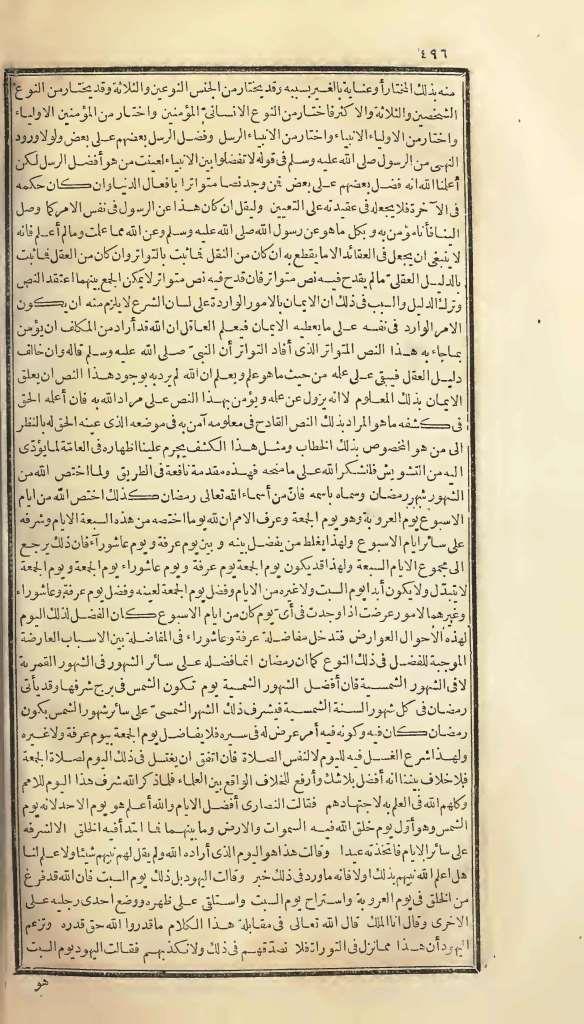 ٤٩٦
منه بذلك المختار أو عناية بالغير بسببه وقد يختار من الجنس النوعين والثلاثة وقد يختار من النوع
الشخصين والثلاثة والاكثر فاختار من النوع الانساني المؤمنين واختار من المؤمنين الاولياء
واختار من الاولياء الانبياء واختار من الانبياء الرسل وفضل الرسل بعضهم على بعض ولولا ورود
النهى من الرسول صلى الله عليه وسلم في قوله لا تفضلوا بين الانبياء لعينت من هو أفضل الرسل لكن
أعلنا الله انه فضل بعضهم على بعض فمن وجد نصا متواترا بافعال الدنيا وان كان حكمه
في الآخرة فلا يجعله في عقيدته على التعيين وليقل ان كان هذا عن الرسول في نفس الامر كما وصل
الينا فأنا مؤمن به وبكل ما هو عن رسول الله صلى الله عليه وسلم وعن الله مما علمت ومالم أعلم فانه
لا ينبغي ان يجعل في العقائد الا ما يقطع به ان كان من النقل فما ثبت بالتواتر وان كان من العقل فما ثبت
بالدليل العقلي مالم يقدح فيه نص متواتر فان قدح فيه نص متواتر لا يمكن الجمع بينهما اعتقد النص
وترك الدليل والسبب في ذلك ان الايمان بالامور الواردة على لسان الشرع لا يلزم منه ان يكون
الامر الوارد في نفسه على ما يعطيه الايمان فيعلم العاقل ان الله قد أراد من المكلف ان يؤمن
بما جاء به هذا النص المتواتر الذى أفاد التواتر أن النبي صلى الله عليه وسلم قاله وان خالف
دليل العقل فيبقى على علمه من حيث ما هو علم ويعلم ان الله لم يرد به بوجود هذا النص ان يعلق
الايمان بذلك المعلوم لا انه يزول عن علمه ويؤمن بهذا النص على مراد الله به فان أعلمه الحق
في كشفه ما هو المراد بذلك النص القادح في معلومه آمن به في موضعه الذى عينه الحق له بالنظر
الى من هو المخصوص بذلك الخطاب ومثل هذا الكشف يحرم علينا اظهاره في العامة لما يؤدى
اليه من التشويش فانشكر الله على ما منحه فهذه مقدمة نافعة في الطريق ولما اختص الله من
الشهور شهر رمضان وسماه باسمه فان من أسماء الله تعالى رمضان كذلك اختص الله من ايام
الاسبوع يوم العروبة وهو يوم الجمعة وعرف الامم ان لله يوما اختصه من هذه السبعة الايام وشرفه
على سائر ايام الاسبوع ولهذا يغلط من يفضل بينه وبين يوم عرفة ويوم عاشوراء فان ذلك يرجع
الى مجموع الايام السبعة ولهذا قد يكون يوم الجمعة يوم عرفة ويوم عاشوراء يوم الجمعة ويوم الجمعة
لا يتبدل ولا يكون أبدا يوم السبت ولا غيره من الايام وفضل يوم الجمعة لعينه وفضل يوم عرفة وعاشوراء
وغيرهما لامور عرضت اذا وجدت في أي يوم كان من ايام الاسبوع كان الفضل لذلك اليوم
لهذه الأحوال العوارض فتدخل مفاضلة عرفة وعاشوراء في المفاضلة بين الاسباب العارضة
الموجبة للفضل في ذلك النوع كما ان رمضان انما فضله على سائر الشهور في الشهور القمرية
لا في الشهور الشمسية فان أفضل الشهور الشمسية يوم تكون الشمس في برج شرفها وقد يأتي
رمضان في كل شهور السنة الشمسية فيشرف ذلك الشهر الشمسي على سائر شهور الشمس بكون
رمضان كان فيه وكونه فيه أمر عرض له في سيره فلا يفاضل يوم الجمعة بيوم عرفة ولا غيره
ولهذا شرع الغسل فيه لليوم لا لنفس الصلاة فان اتفق ان يغتسل في ذلك اليوم لصلاة الجمعة
فلا خلاف بيننا انه أفضل بلا شك وأرفع للخلاف الواقع بين العلماء فلما ذكر الله شرف هذا اليوم للامم
وكلهم الله في العلم به لاجتهادهم فقالت النصارى أفضل الايام والله أعلم هو يوم الاحد لانه يوم
الشمس وهو أول يوم خلق الله فيه السموات والارض وما بينهما فما ابتدأ فيه الخلق الا لشرفه
على سائر الايام فاتخذته عيدا وقالت هذا هو اليوم الذى أراده الله ولم يقل لهم نبيهم شيئا ولا علم لنا
هل اعلم الله نبيهم بذلك أولا فانه ما ورد في ذلك خبر وقالت اليهود بل ذلك يوم السبت فان الله قد فرغ
من الخلق في يوم العروبة واستراح يوم السبت واستلقى على ظهره ووضع احدى رجليه على
الاخرى وقال انا الملك قال الله تعالى في مقابلة هذا الكلام ما قدروا الله حق قدره وتزعم
اليهود أن هذا مما نزل في التوراة فلا نصدقهم في ذلك ولا نكذبهم فقالت اليهود يوم السبت
هو